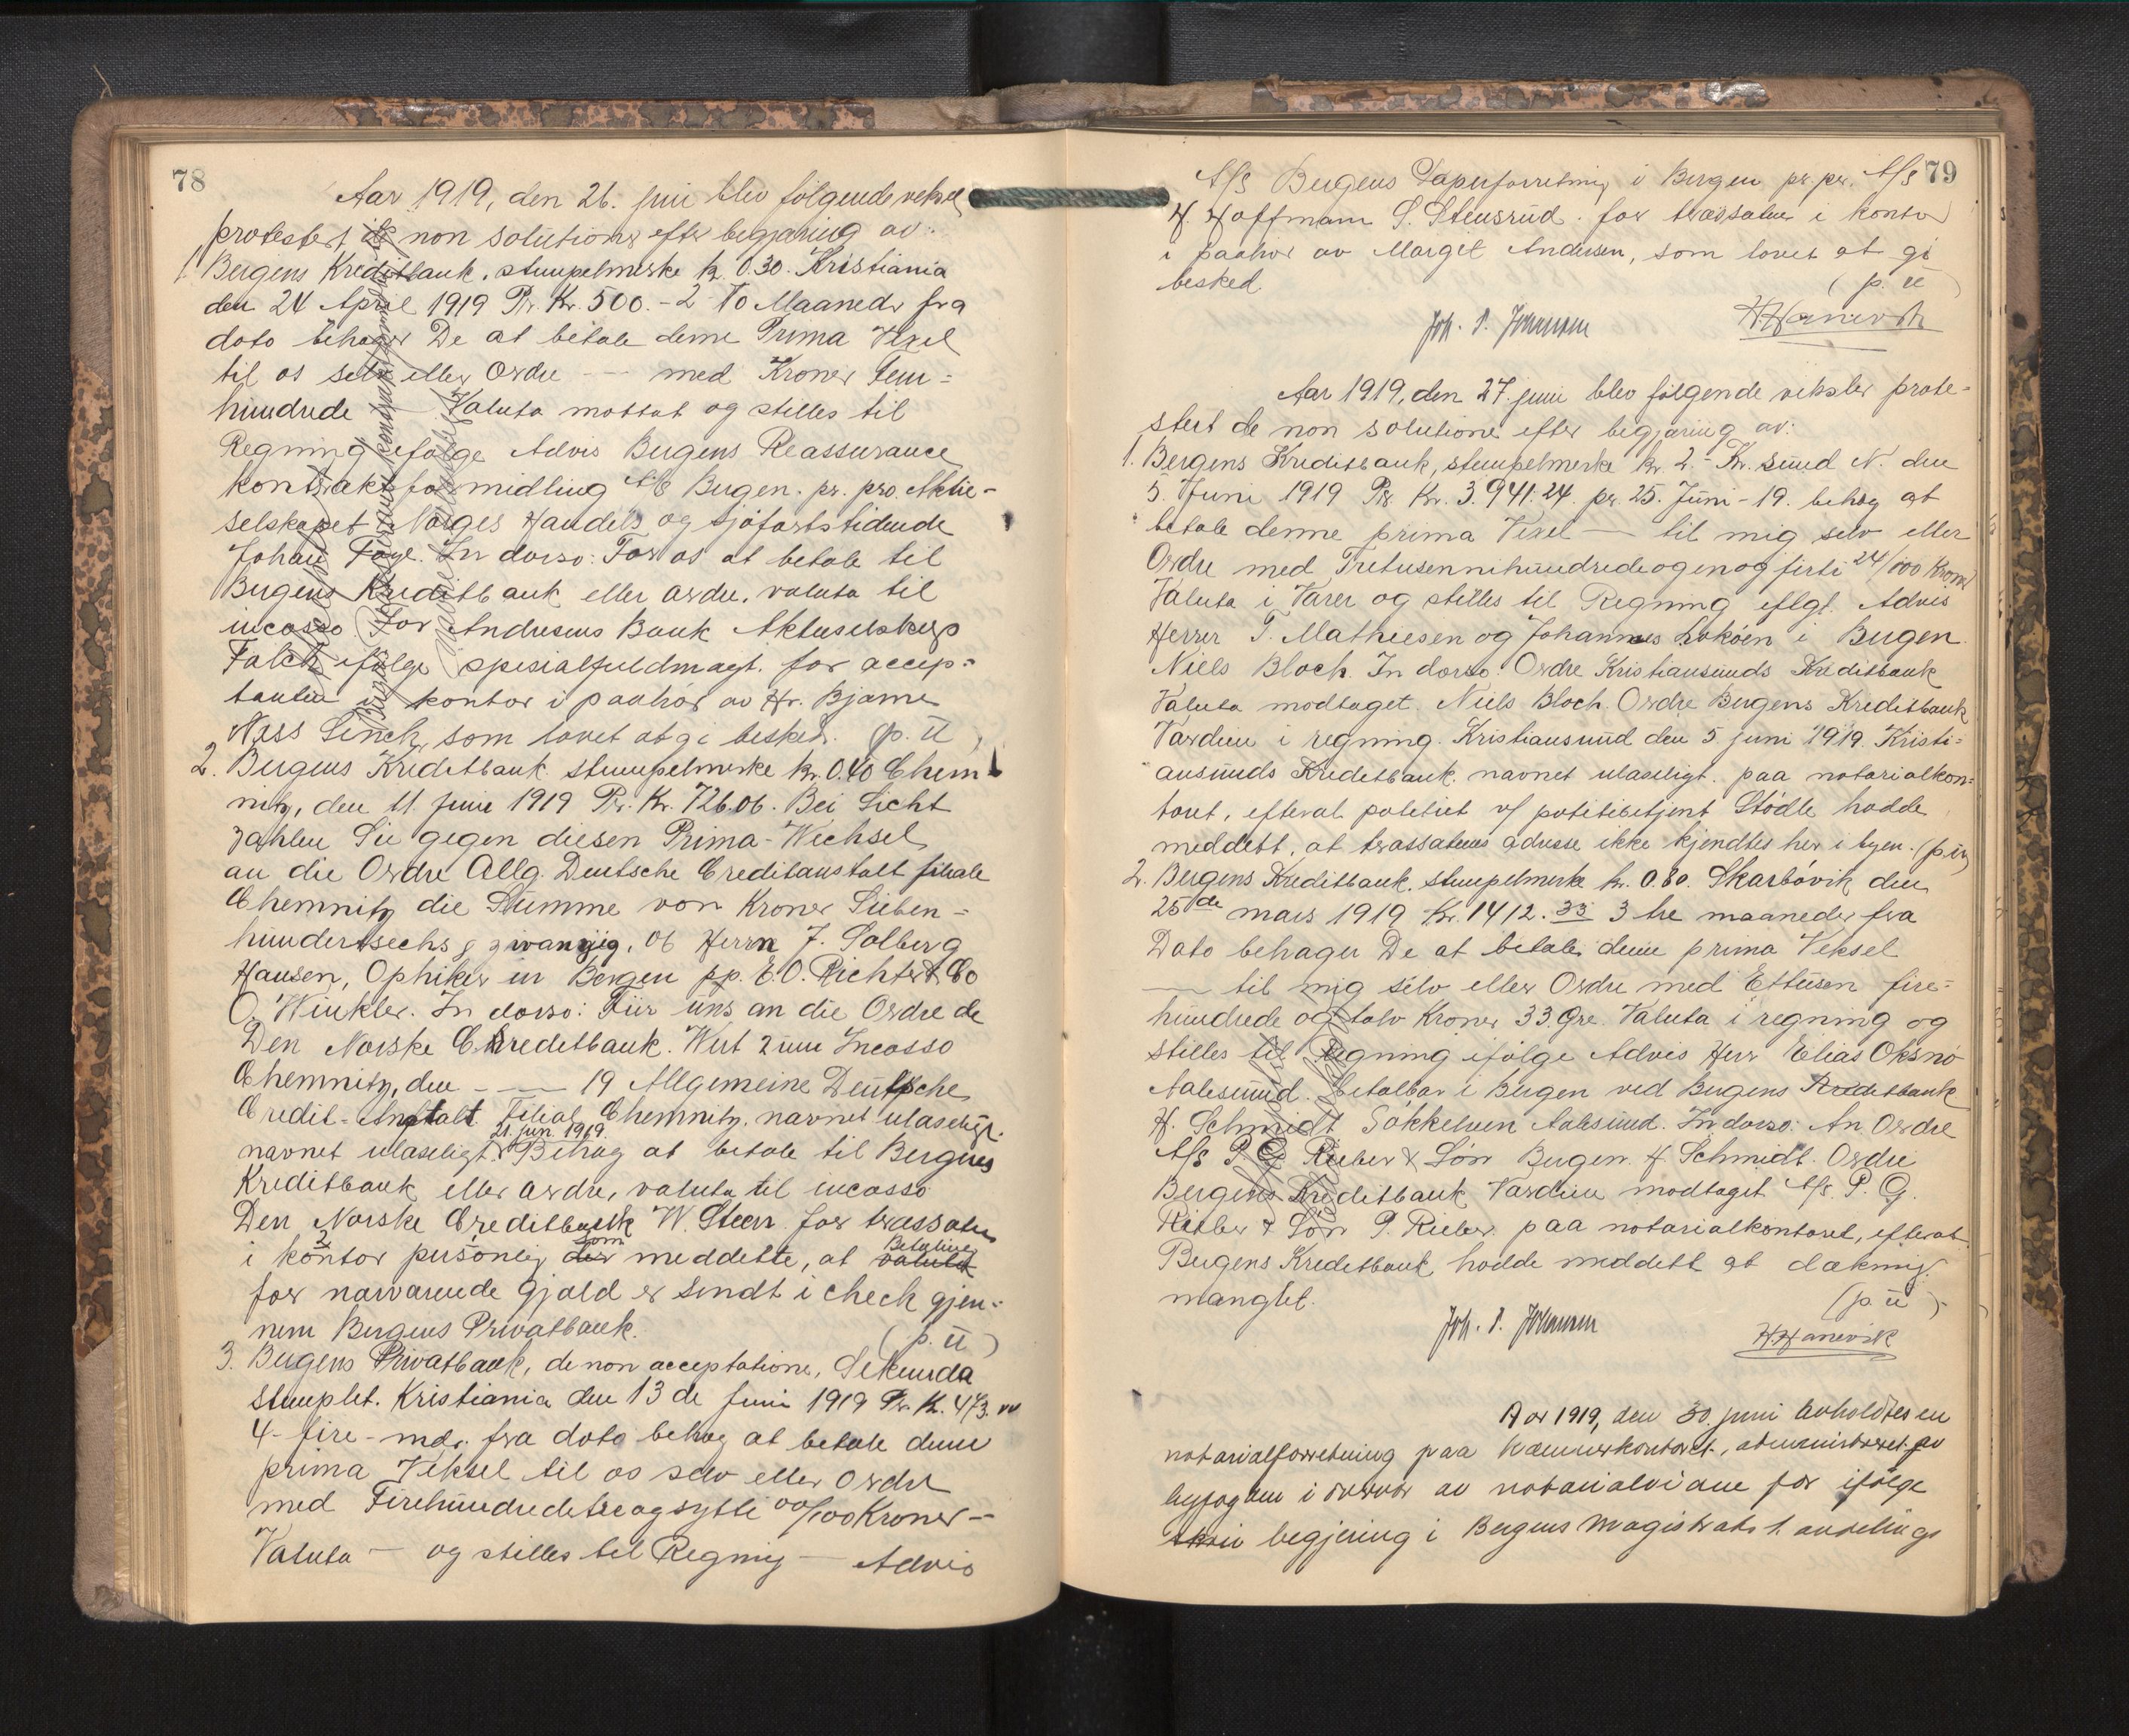 78
Aar 1919, den 26. juni blev følgende veksel
protestert de non solutione efter begjæring av:
1. Bergens Kreditbank, stempelmerke kr. 0.30. Kristiania
den 24 April 1919 Pr. Kr. 500.- 2 To Maaneder fra
dato behager De at betale denne Prima Vexel
til os selv eller Ordre — med Kroner Fem=
hundrede — Valuta mottat og stilles til
Regning ifølge Advis Bergens Reassurance
kontraktformidling A/S Bergen. pr. pro. Aktie-
selskapet Norges Handels og Sjöfartstidende
Johan Faye. In dorso: For os at betale til
Bergens Kreditbank eller ordre, valuta til
incasso. For Andresens Bank Aktieselskap
Falch ifølge spesialfuldmagt. for accep=
tanten i kontor i paahør av Hr. Bjarne
Næss Linck, som lovet at gi besked. (p. u)
2. Bergens Kreditbank stempelmerke kr. 0.40 Chem-
nitz, den 11. Juni 1919 Pr. Kr. 726.06. Bei Sicht
zahlen Sie gegen diesen Prima-Wechsel
an die Ordre Allg. Deutsche Creditanstalt filiale
Chemnitz die Summe von Kroner Sieben=
hundertsechs & zwanzig, 06 Herrn J. Solberg
Hansen, Optiker in Bergen pp. E.O. Richter & Co
O. Winkler. In dorso: Für uns an die Ordre de
Den Norske Creditbank. Wert zum Incasso
Chemnitz, den — 19 Allgemeine Deutsche
Credit-Anstalt Filiale Chemnitz. navnet ulæseligt.
21 jun. 1919
navnet ulæseligt. Behag at betale til Bergens
Kreditbank eller ordre, valuta til incasso
Den Norske Creditbank W. Steen. for trassaten
i kontor personlig der som meddelte, at valuta Betaling
for nærværende gjæld er sendt i check gjen-
nem Bergens Privatbank. (p. u)
3. Bergens Privatbank, de non acceptatione, Sekunda
stemplet. Kristiania den 13 de Juni 1919 Pr. K. 473. 00
4- fire - mdr. fra dato behag at betale denne
prima Veksel til os selv eller ordre
med Firehundredetreogsytti 00/100 Kroner —
Valuta — og stilles til Regning — Advis
79
A/S Bergens Papirforretning i Bergen pr. pr. A/S
H. Hoffmann S. Stensrud. for trassaten i kontor
i paahør av Margit Andersen, som lovet at gi
besked. (p. u)
Joh. P. Johansen H. Hanevik
Aar 1919, den 27. juni blev følgende veksler prote-
stert de non solutione efter begjæring av:
1. Bergens Kreditbank, stempelmerke kr. 2.- Kr. sund N. den
5. Juni 1919 Pr. Kr. 3.941.24. pr. 25. Juni - 19. behag at
betale denne prima Vexel — til mig selv eller
Ordre med Tretusennihundredeogenogfirti 24/100 Kroner
Valuta i Varer og stilles til Regning iflgl. Advis
Herrer T. Mathiesen og Johannes Lokøen i Bergen
Niels Bloch. In dorso: Ordre Kristiansunds Kreditbank
Valuta modtaget. Niels Bloch. Ordre Bergens Kreditbank
Værdien i regning. Kristiansund den 5 juni 1919. Kristi=
ansunds Kreditbank. navnet ulæseligt. paa notarialkon=
toret, efterat politiet v/ politibetjent Stödle hadde
meddelt, at trassatens adresse ikke kjendtes her i byen. (p. u)
2. Bergens Kreditbank. stempelmerke kr. 0.80. Skarbövik den
25de mars 1919 Kr. 1412.33 3 tre maaneder fra
Dato behager De at betale denne prima Veksel
— til mig selv eller Ordre med Ettusen fire=
hundrede og tolv Kroner 33 Øre. Valuta i regning og
stilles til Regning ifølge Advis Herr Elias Oksnö
Aalesund. betalbar i Bergen ved Bergens Kreditbank
H. Schmidt Sökkelven Aalesund. In dorso: An Ordre
A/S P. G. Rieber & Sön Bergen. H Schmidt. Ordre
Bergens Kreditbank Værdien modtaget A/S. P. G.
Rieber & Sön P. Rieber. paa notarialkontoret, efterat
Bergens Kreditbank hadde meddelt at dækning
manglet. (p. u)
Joh. P. Johansen H. Hanevik
Aar 1919, den 30. juni avholdtes en
notarialforretning paa kæmnerkontoret, administreret av
byfogden i nærvær av notarialvidne for ifølge
begjæring i Bergens Magistrats 1. avdelings